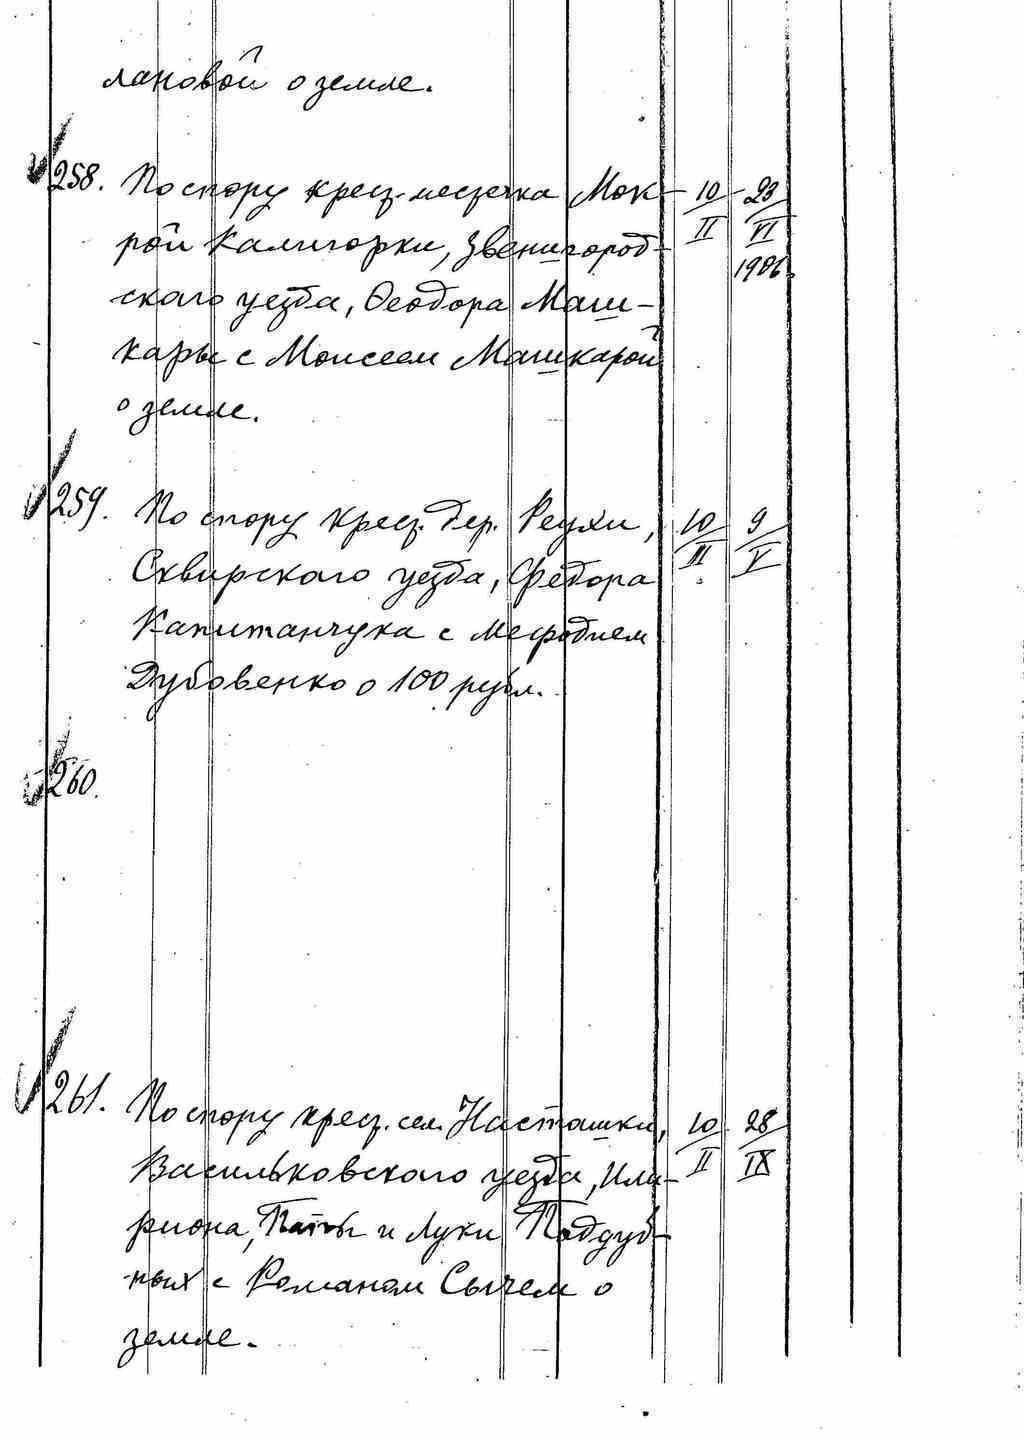 лановой о земле.
258. По спору крест. местечка Мок- 10/II 23/VI 1906.
рой Калигорки, Звенигород-
ского уезда, Феодора Маш-
кары с Моисеем Машкарой
о земле.
259. По спору крест. дер. Реухи, 10/III 9/V
Сквирского уезда, Федора
Капитанчука с Мефодием
Дубовенко о 100 рубл.
260.
261. По спору крест. сел. Насташки, 10/II 28/IX
Васильковского уезда, Ила-
риона, и Луки Поддуб-
ных с Романом Сычем о
земле.